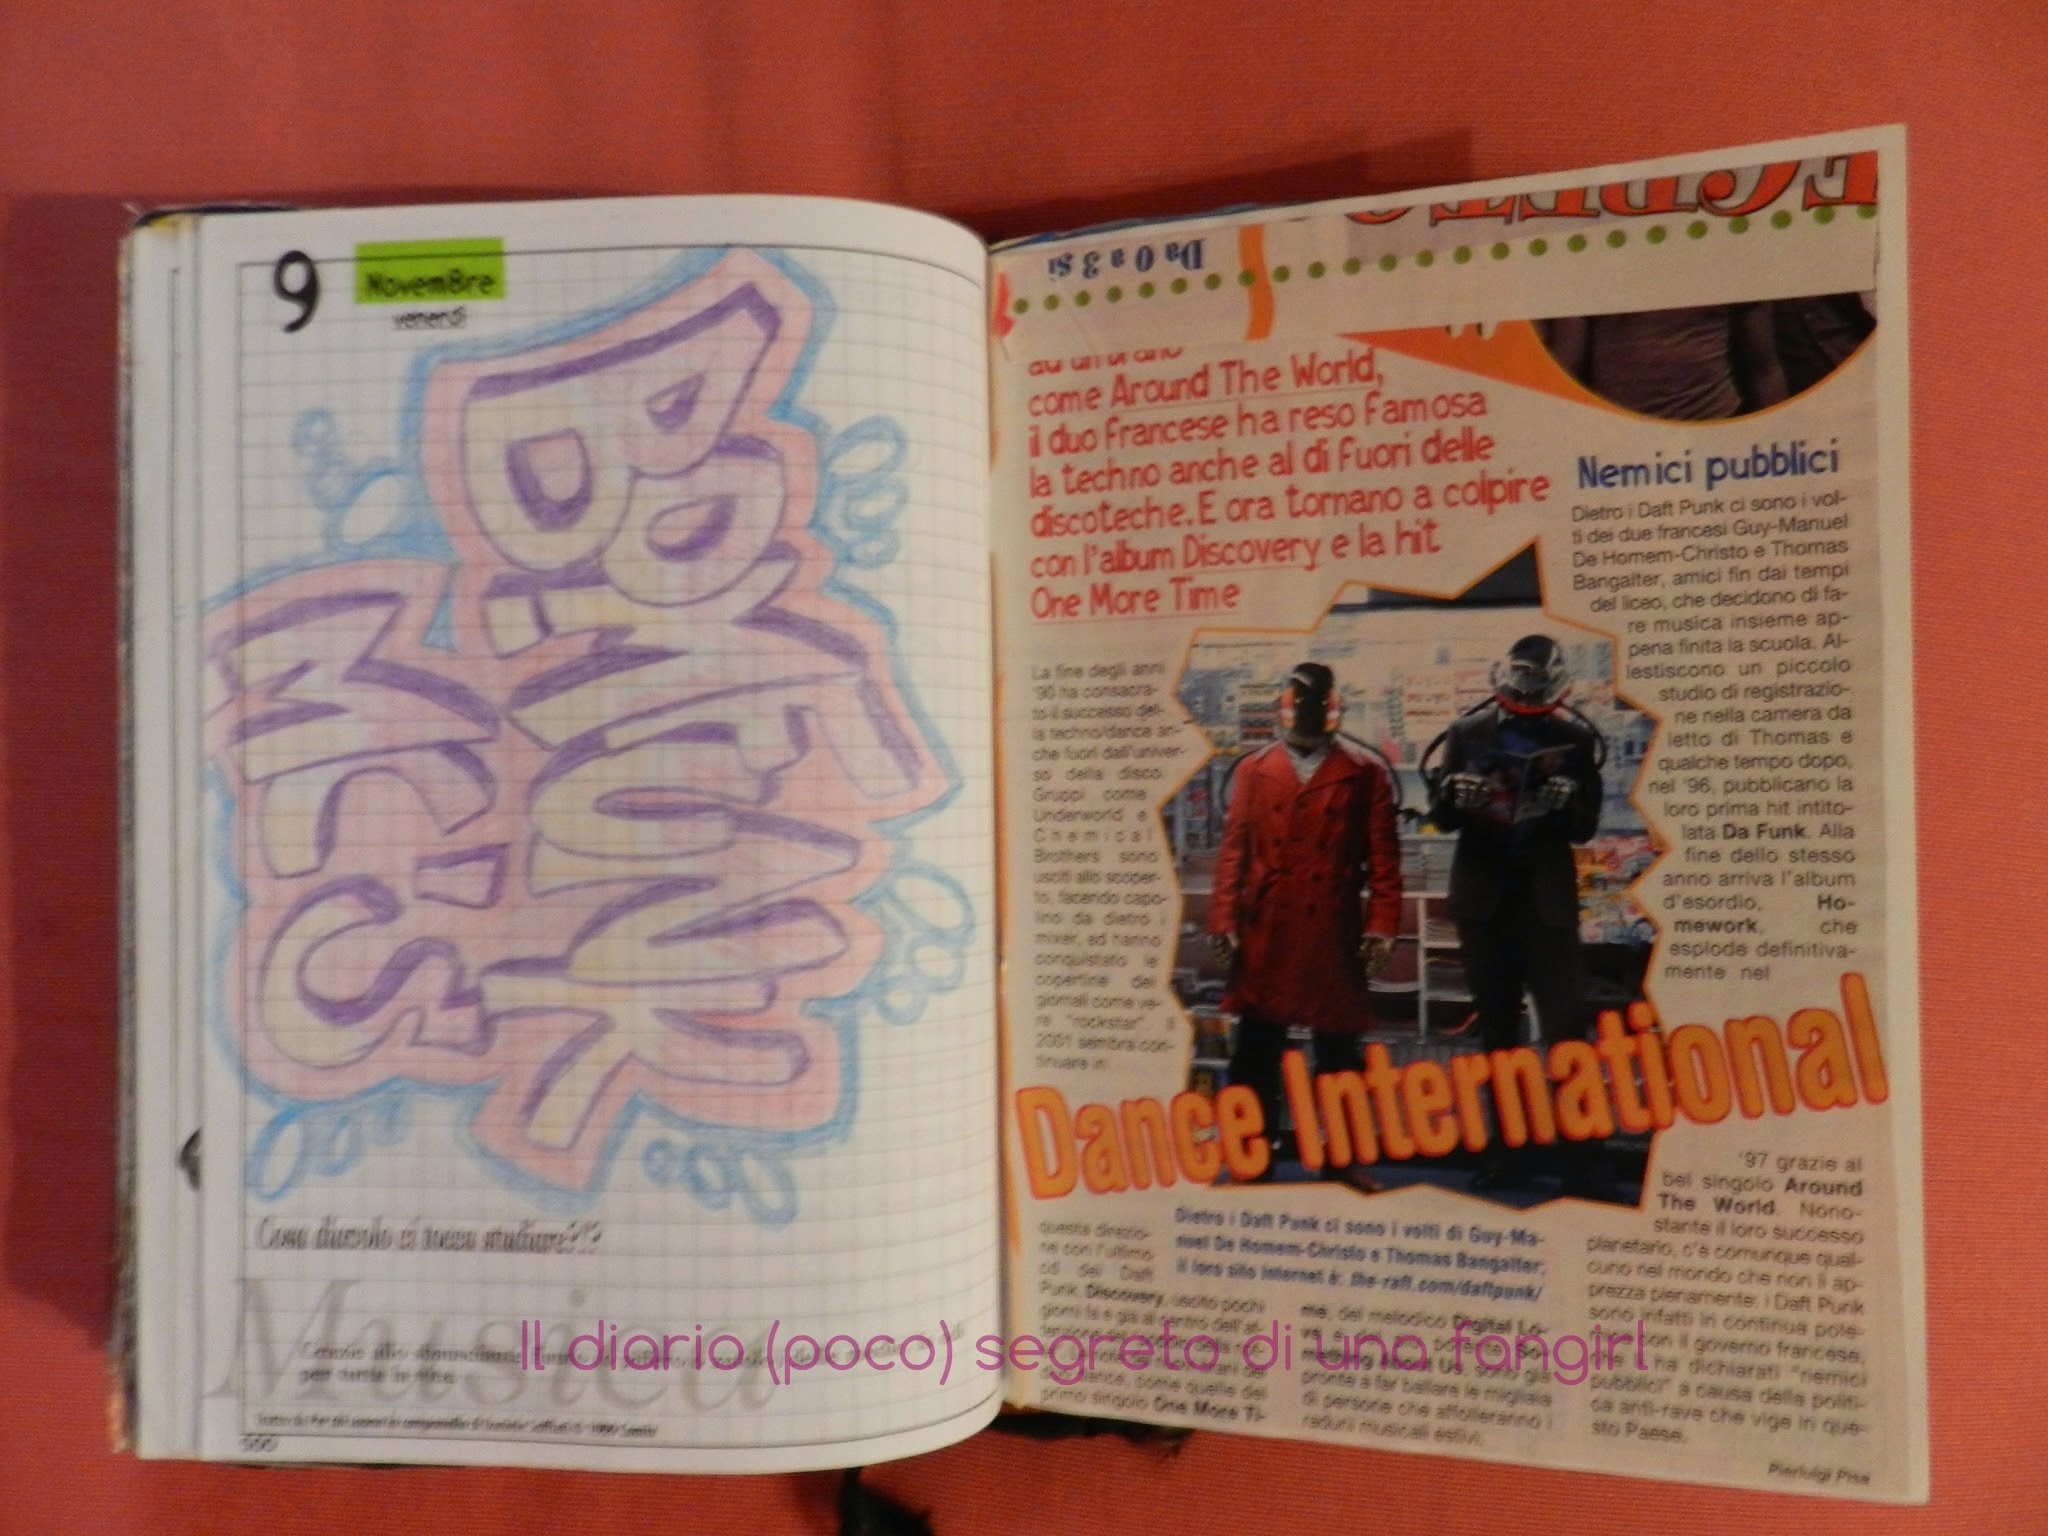 9
Novem8re
venerdì
DAFT
PUNK
MUSIC
Musica
Da 0 a 3 Sì
ad un brano
come Around The World,
il duo francese ha reso famosa
la techno anche al di fuori delle
discoteche. E ora tornano a colpire
con l'album Discovery e la hit
One More Time
La fine degli anni
'90 ha consacra-
to il successo del-
la techno/dance an-
che fuori dall'univer-
so della disco.
Gruppi come
Underworld e
Chemical
Brothers sono
usciti allo scoper-
to, facendo capo-
lino da dietro i
mixer, ed hanno
conquistato le
copertine dei
giornali come ve-
re "rockstar". Il
2001 sembra con-
tinuare in
Nemici pubblici
Dietro i Daft Punk ci sono i vol-
ti dei due francesi Guy-Manuel
De Homem-Christo e Thomas
Bangalter, amici fin dai tempi
del liceo, che decidono di fa-
re musica insieme ap-
pena finita la scuola. Al-
lestiscono un piccolo
studio di registrazio-
ne nella camera da
letto di Thomas e
qualche tempo dopo,
nel '96, pubblicano la
loro prima hit intito-
lata Da Funk. Alla
fine dello stesso
anno arriva l'album
d'esordio, Ho-
mework, che
esplode definitiva-
mente nel
Dance International
questa direzio-
ne con l'ultimo
cd dei Daft
Punk, Discovery, uscito pochi
giorni fa e già al centro dell'at-
dance, come quelle del
primo singolo One More Ti-
Dietro i Daft Punk ci sono i volti di Guy-Ma-
nuel De Homem-Christo e Thomas Bangalter;
il loro sito internet è: the-raft.com/daftpunk/
me, del melodico Digital Lo-
ve, e potente So-
mething About Us, sono già
pronte a far ballare le migliaia
di persone che affolleranno i
raduni musicali estivi.
'97 grazie al
bel singolo Around
The World. Nono-
stante il loro successo
planetario, c'è comunque qual-
cuno nel mondo che non li ap-
prezza pienamente: i Daft Punk
sono infatti in continua pole-
con il governo francese,
ha dichiarati "nemici
pubblici" a causa della politi-
ca anti-rave che vige in que-
sto Paese.
Pierluigi Pisa
Il diario (poco) segreto di una fangirl